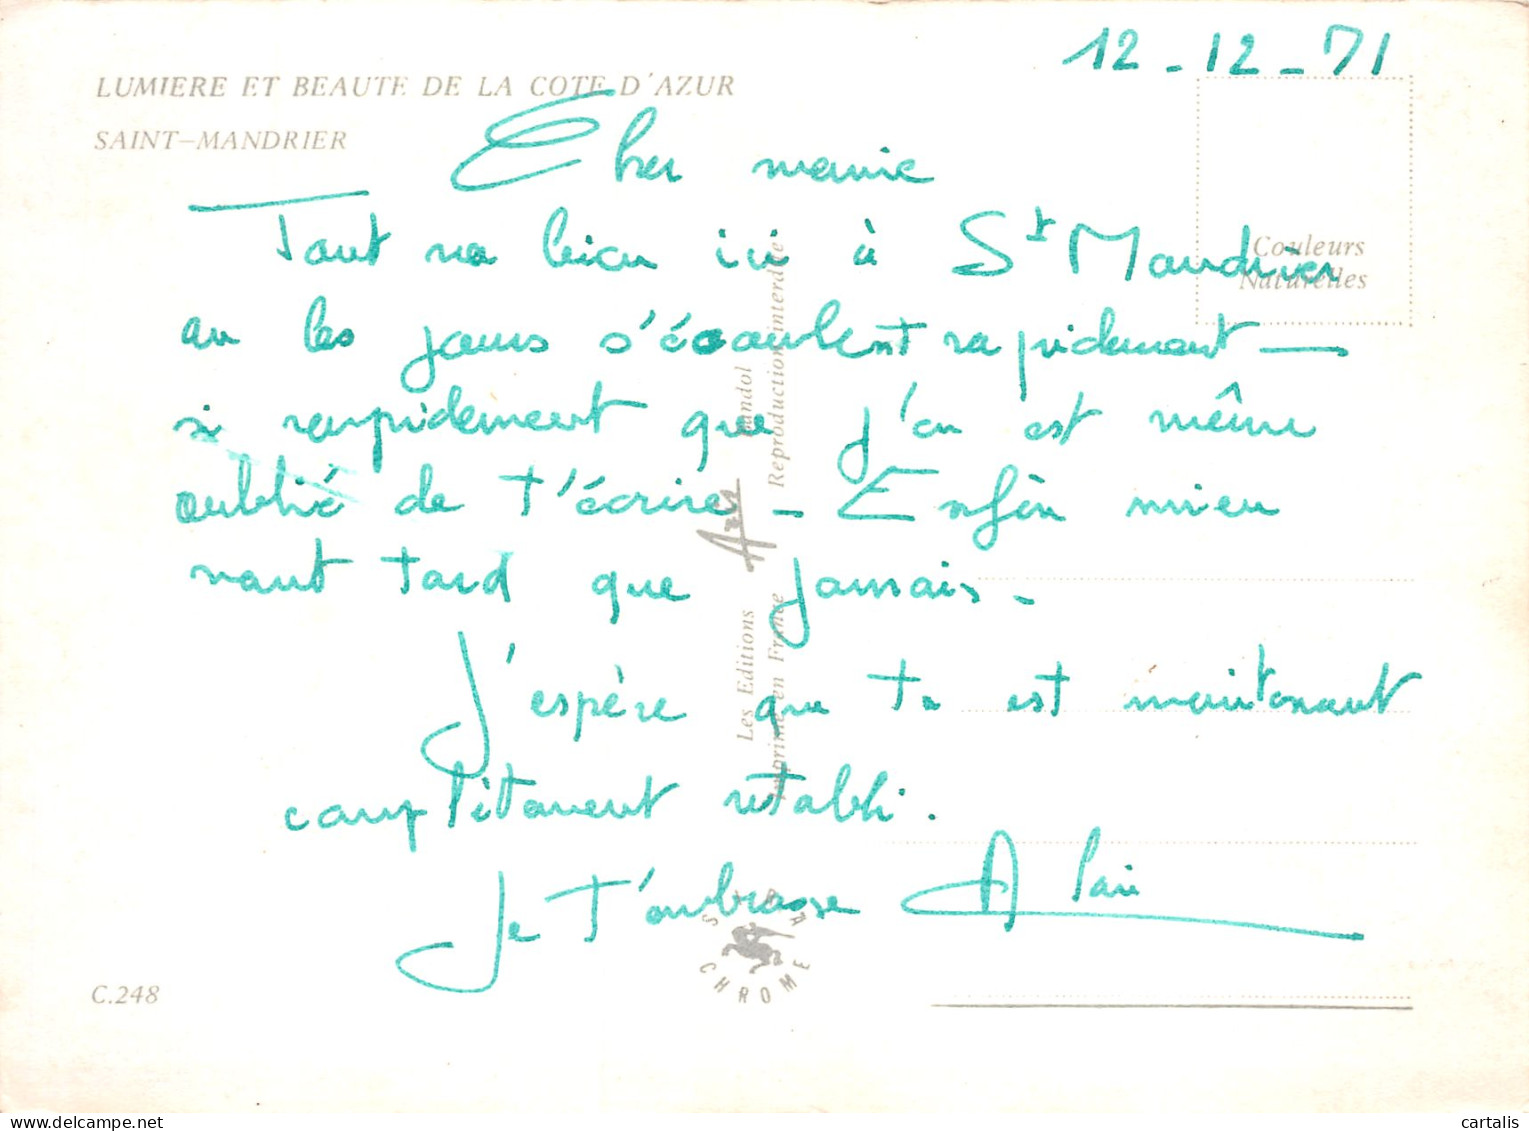 12-12-71
LUMIERE ET BEAUTE DE LA COTE D'AZUR
SAINT-MANDRIER
Cher mamie
Tout va bien ici à St Mandrier
Couleurs
Naturelles
ou les jours s'écoulent rapidement —
si rapidement que j'en est même
oublié de t'écrire - Enfin mieu
vaut tard que jamais -
J'espère que tu est maintenant
complètement rétabli.
Je t'embrasse Alain
Les Editions Bandol
Imprimé en France Reproduction interdite
CHROME
C.248
cartalis